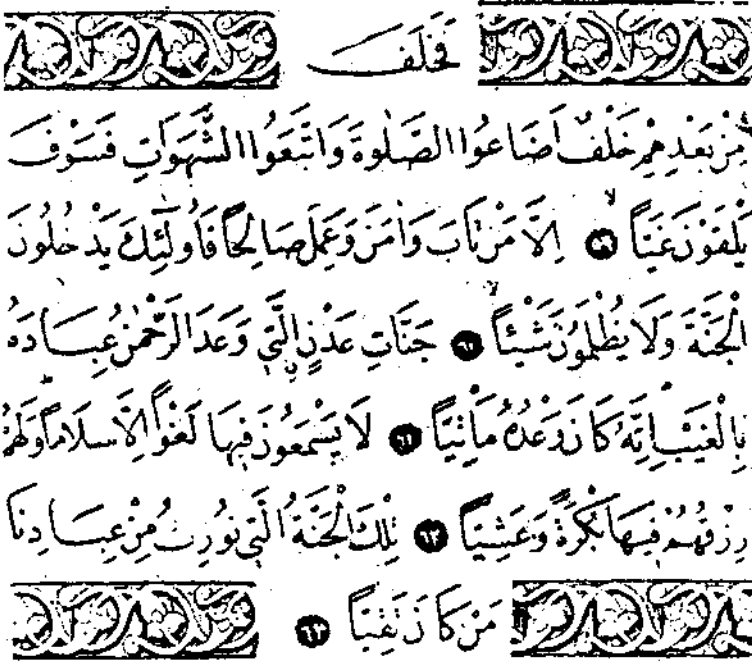 فَخَلَفَ
مِنْ بَعْدِهِمْ خَلْفٌ اَضَاعُوا الصَّلٰوةَ وَاتَّبَعُوا الشَّهَوَاتِ فَسَوْفَ
يَلْقَوْنَ غَيًّاۙ ﴿٥٩﴾ اِلَّا مَنْ تَابَ وَاٰمَنَ وَعَمِلَ صَالِحًا فَاُولٰٓئِكَ يَدْخُلُونَ
الْجَنَّةَ وَلَا يُظْلَمُونَ شَيْـًٔاۙ ﴿٦٠﴾ جَنَّاتِ عَدْنٍ الَّتٖى وَعَدَ الرَّحْمٰنُ عِبَادَهُ
بِالْغَيْبِ اِنَّهُ كَانَ وَعْدُهُ مَاْتِيًّا ﴿٦١﴾ لَا يَسْمَعُونَ فٖيهَا لَغْوًا اِلَّا سَلَامًا وَلَهُمْ
رِزْقُهُمْ فٖيهَا بُكْرَةً وَعَشِيًّا ﴿٦٢﴾ تِلْكَ الْجَنَّةُ الَّتٖى نُورِثُ مِنْ عِبَادِنَا
مَنْ كَانَ تَقِيًّا ﴿٦٣﴾